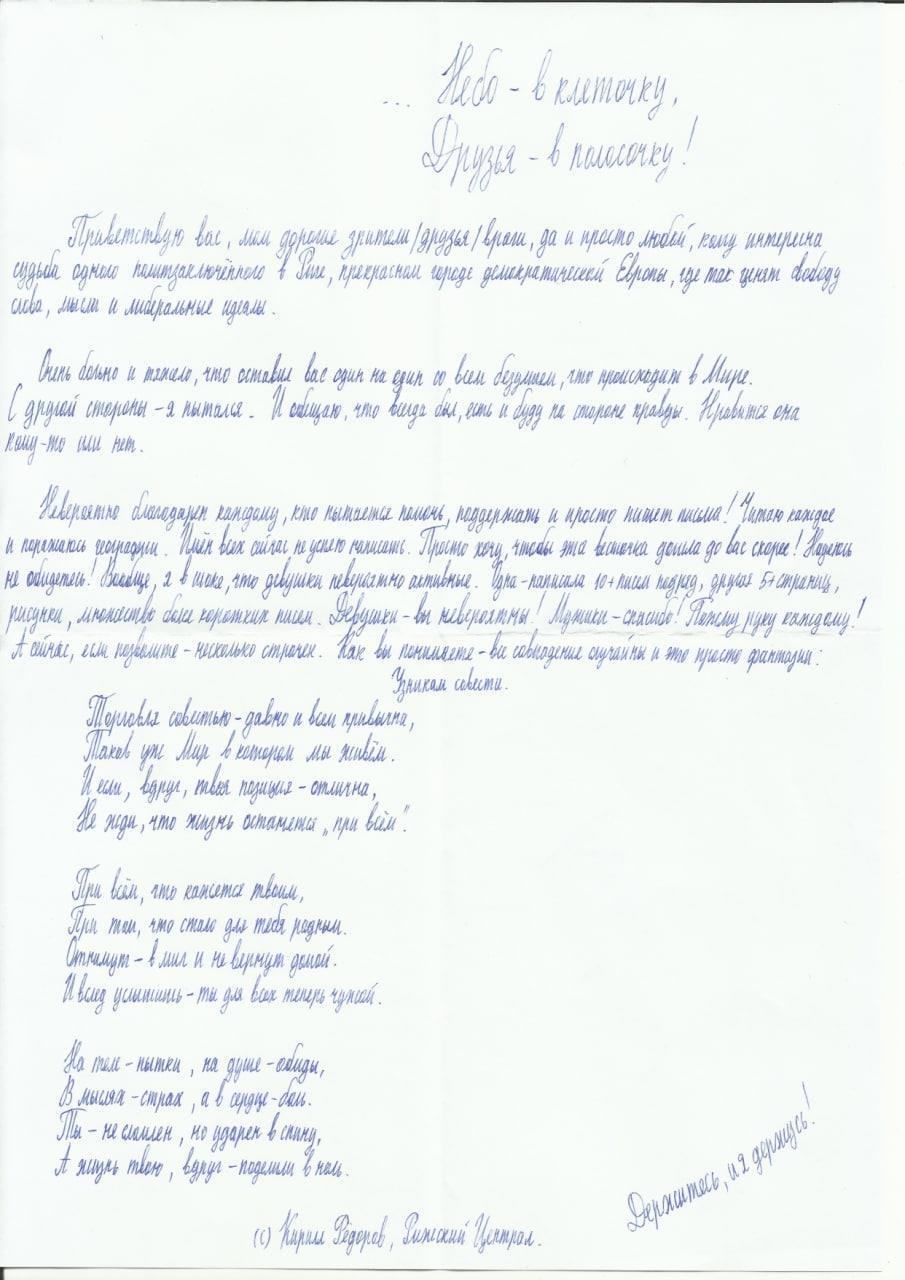 ... Небо - в клеточку,
Друзья - в полосочку!
Приветствую вас, мои дорогие зрители/друзья/враги, да и просто людей, кому интересна
судьба одного политзаключённого в Риге, прекрасном городе демократической Европы, где так ценят свободу
слова, мысли и либеральные идеалы.
Очень больно и тяжело, что оставил вас один на один со всем безумием, что происходит в Мире.
С другой стороны - я пытался. И обещаю, что всегда был, есть и буду на стороне правды. Нравится она
кому-то или нет.
Невероятно благодарен каждому, кто пытается помочь, поддержать и просто пишет письма! Читаю каждое
и поражаюсь географии. Имён всех сейчас не успею написать. Просто хочу, чтобы эта весточка дошла до вас скорее! Надеюсь
не обидетесь! Вообще, я в шоке, что девушки невероятно активные. Одна - написала 10+ писем подряд, другая 5+ страниц,
рисунки, множество более коротких писем. Девушки - вы невероятны! Мужики - спасибо! Пожму руку каждому!
А сейчас, если позволите - несколько строчек. Как вы понимаете - все совпадения случайны и это просто фантазии:
Узникам совести.
Торговля совестью - давно и всем привычна,
Таков уж Мир в котором мы живём.
И если, вдруг, твоя позиция - отлична,
Не жди, что жизнь останется „при всём".
При всём, что кажется твоим,
При том, что стало для тебя родным.
Отнимут - в миг и не вернут домой.
И вслед услышишь - ты для всех теперь чужой.
На теле - пытки, на душе - обиды,
В мыслях - страх, а в сердце - боль.
Ты - не сломлен, но ударен в спину,
А жизнь твою, вдруг - поделили в ноль.
Держитесь, и я держусь!
(с) Кирилл Фёдоров, Рижский Централ.